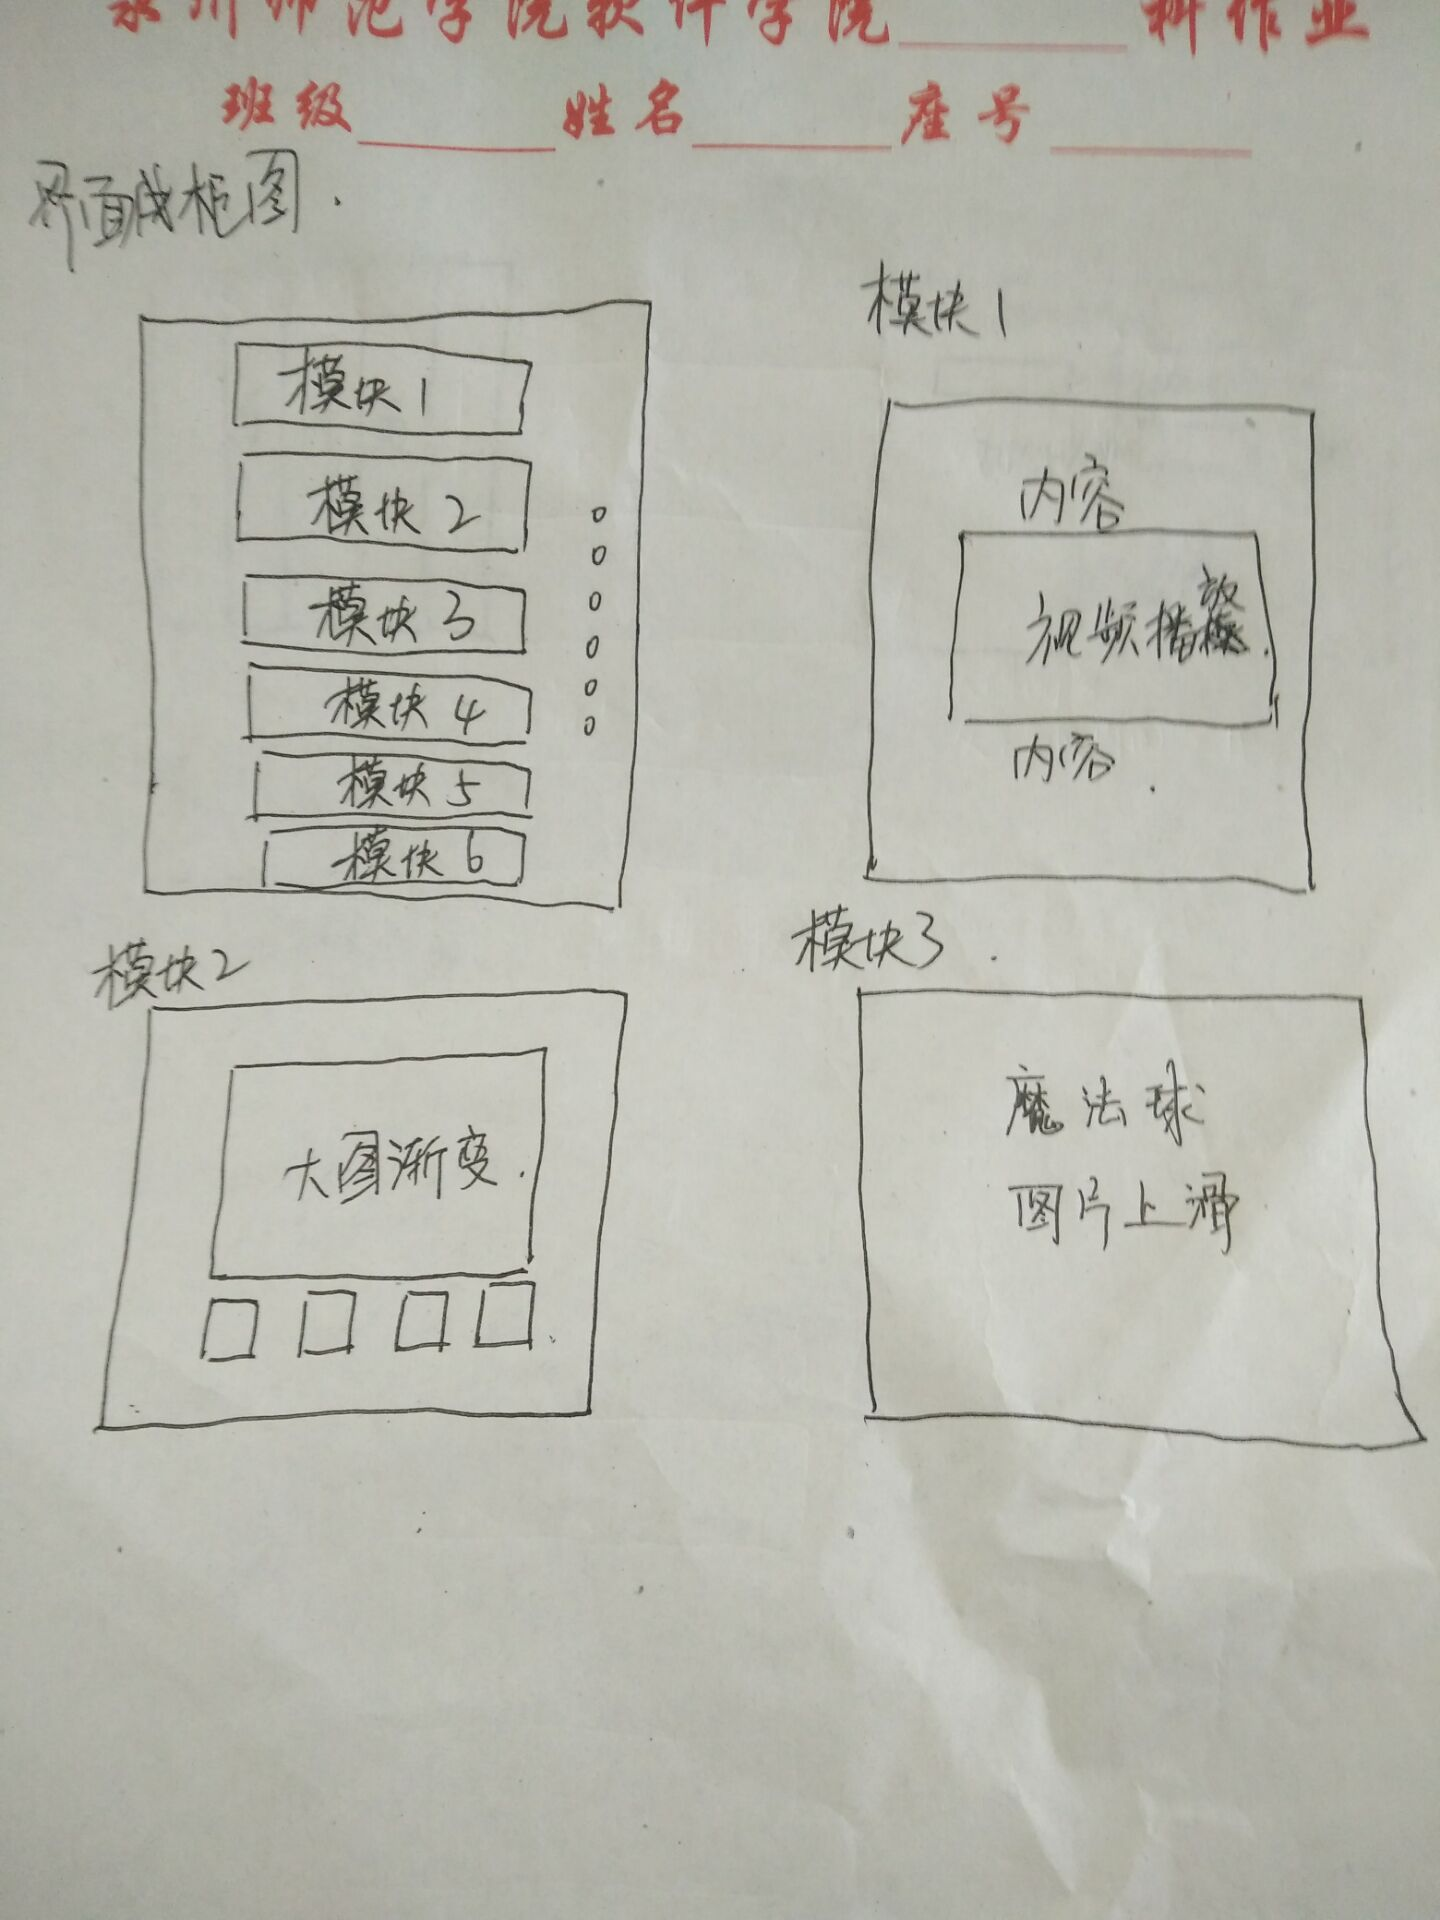 泉州师范学院软件学院________科作业
班级________姓名________座号________
界面线框图.
模块1
模块2
模块3
模块4
模块5
模块6
模块1
内容
视频播放.
内容
模块2
大图渐变.
模块3.
魔法球
图片上滑